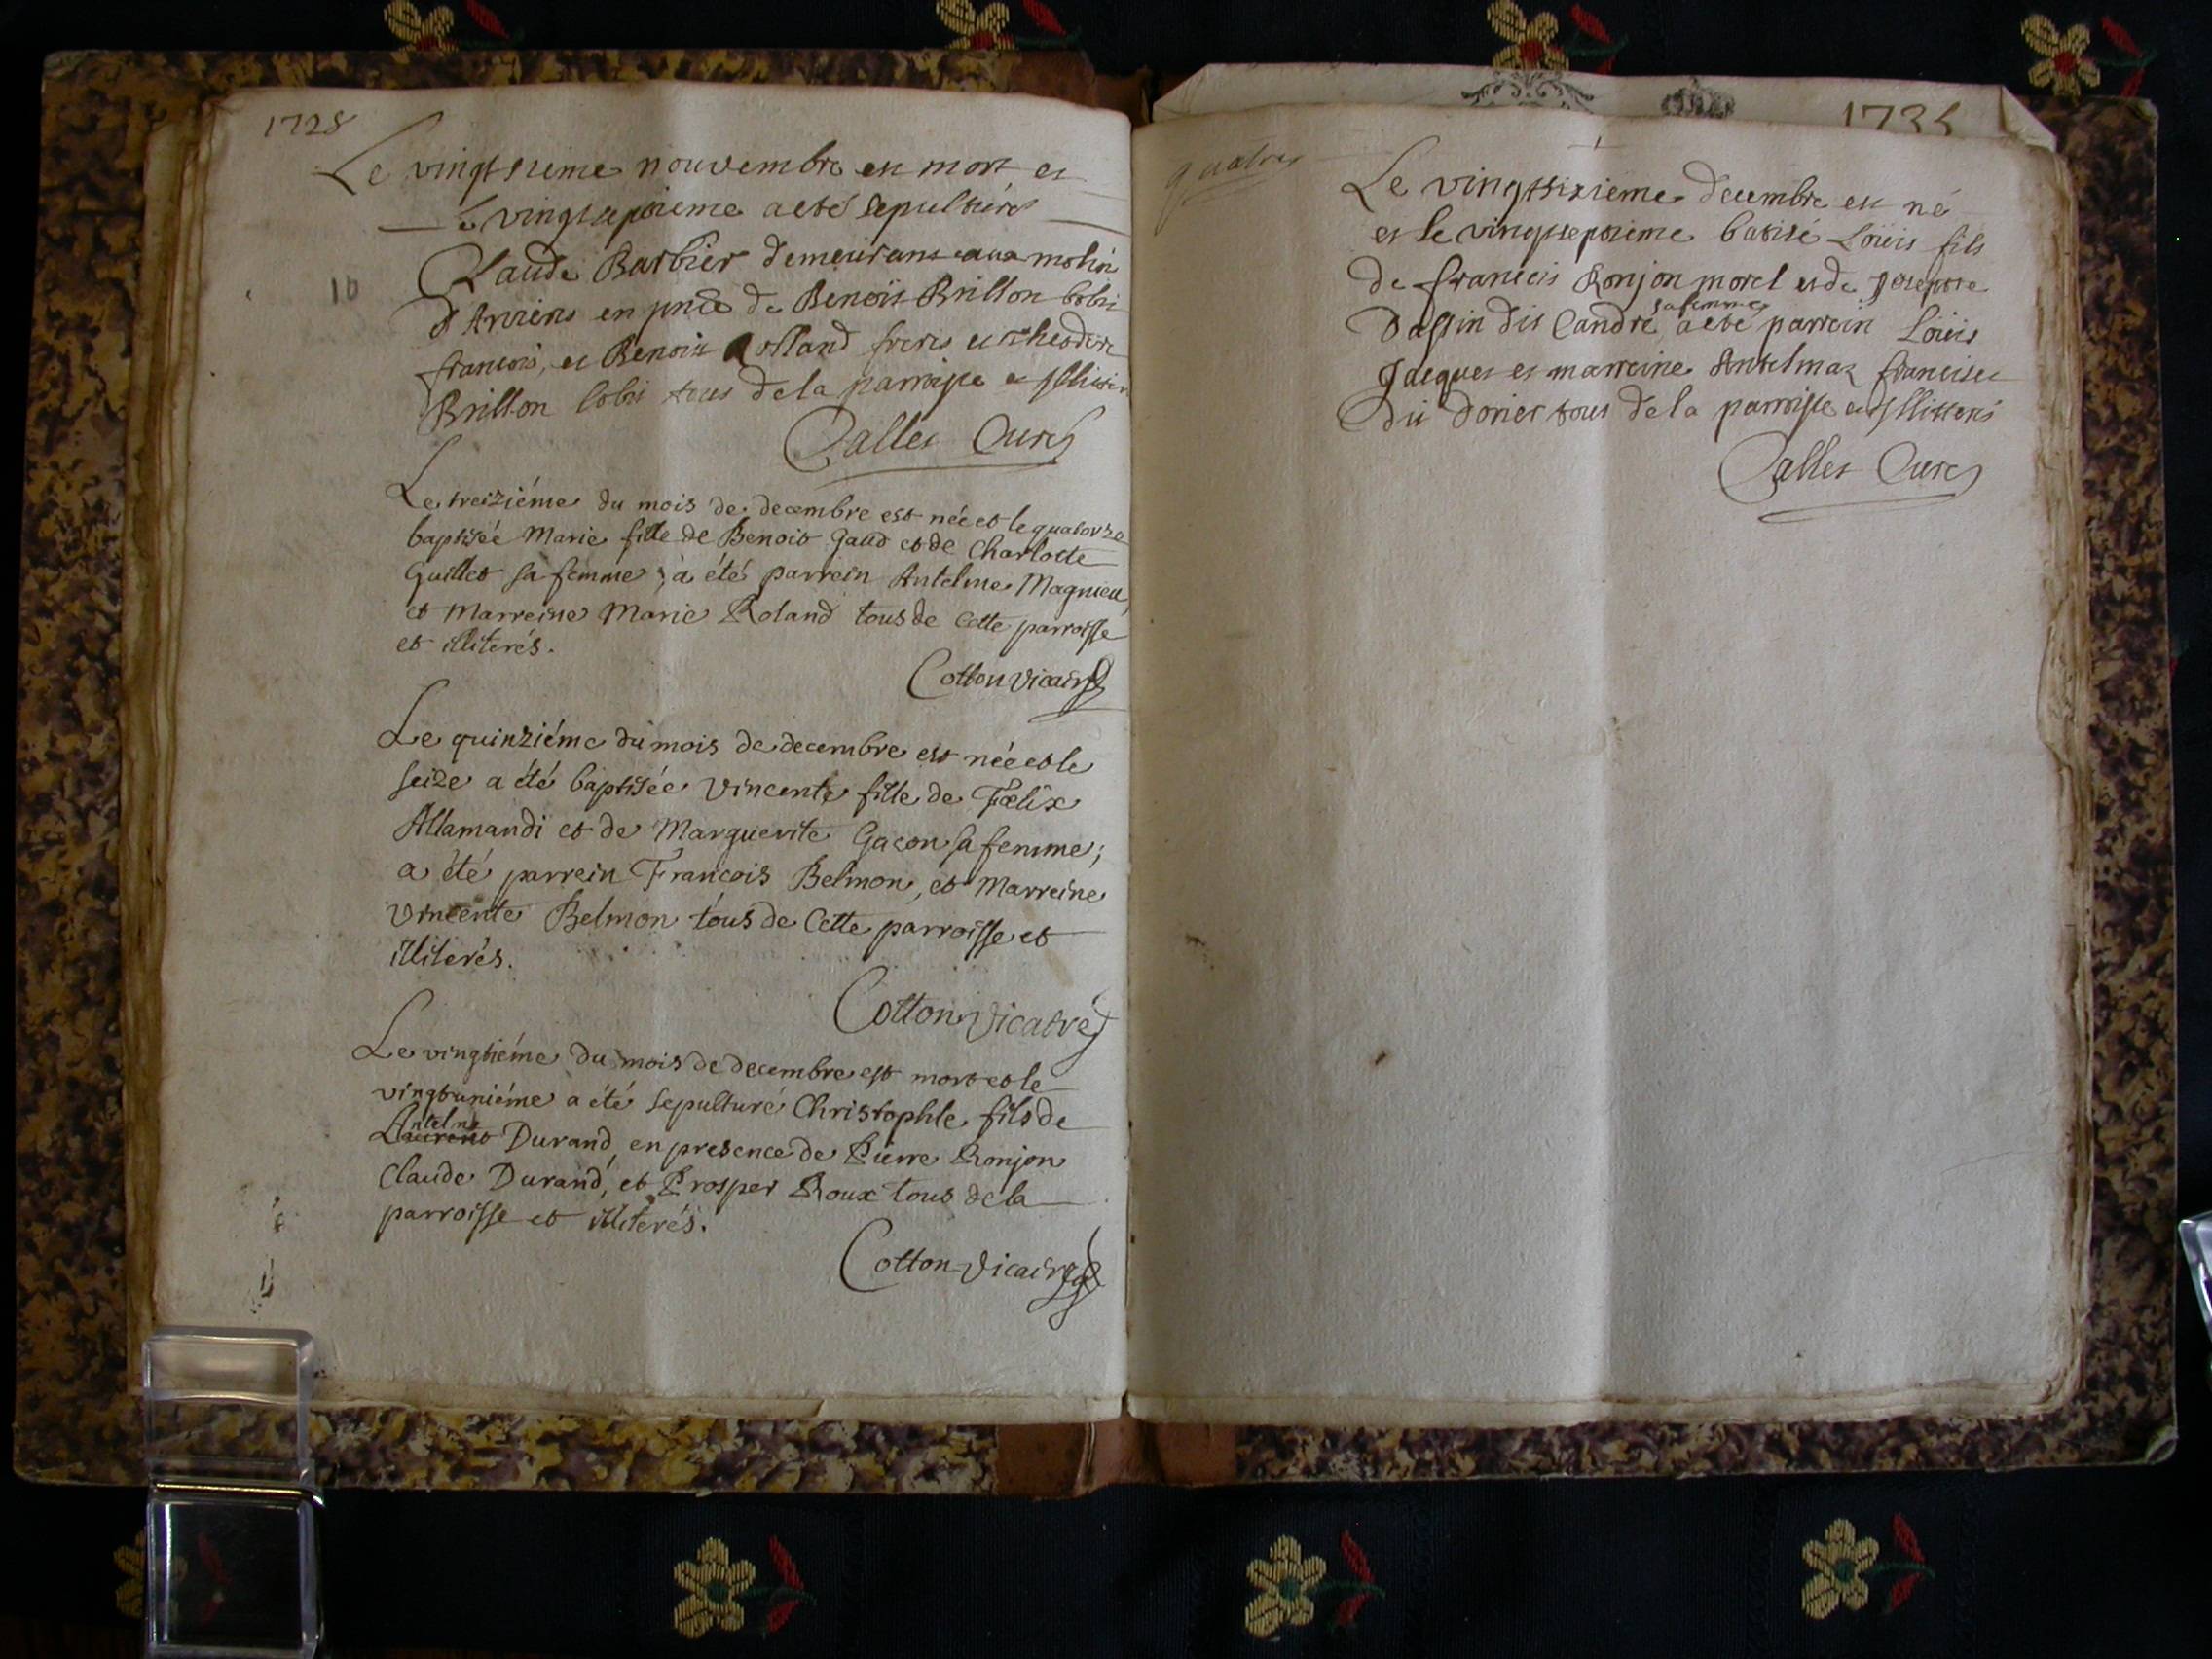 1728
Le vingt sixieme nouvembre est mort et
le vingtseptieme a eté sepulturé
Claude Barbier demeurant aux molin
d'Arviere en pnce de Benoit Brillon
francois, et Benoit Rolland freres et Theodore
Brillon tous de la parroisse et
Callet Curé
10
Le treiziéme du mois de decembre est née et le quatorze
baptisée Marie fille de Benoit Gaud et de Charlotte
Guillet sa femme; a été parrein Antelme Magnieu,
et Marreine Marie Roland tous de cette parroisse
et illiterés.
Cotton vicaire
Le quinziéme du mois de decembre est née et le
seize a été baptisée Vincente fille de Fœlix
Allamandi et de Marguerite Gacon sa femme;
a été parrein Francois Belmon, et Marreine
Vincente Belmon tous de Cette parroisse et
illiterés.
Cotton Vicaire
Le vingtiéme du mois de decembre est mort et le
vingtuniéme a été sepulturé Christophle fils de
Antelme
Durand, en presence de Pierre Ronjon
Claude Durand, et Prosper Roux tous de la
parroisse et illiterés.
Cotton Vicaire
1735
quatres
Le vingtsixieme decembre est né
et le vingtseptieme batisé Loüis fils
de francois Ronjon morel et de
sa femme
dit Candre a eté parrein Loüis
Jacques et marreine Antelmaz francise
du dorier tous de la parroisse et illitterés
Callet Curé